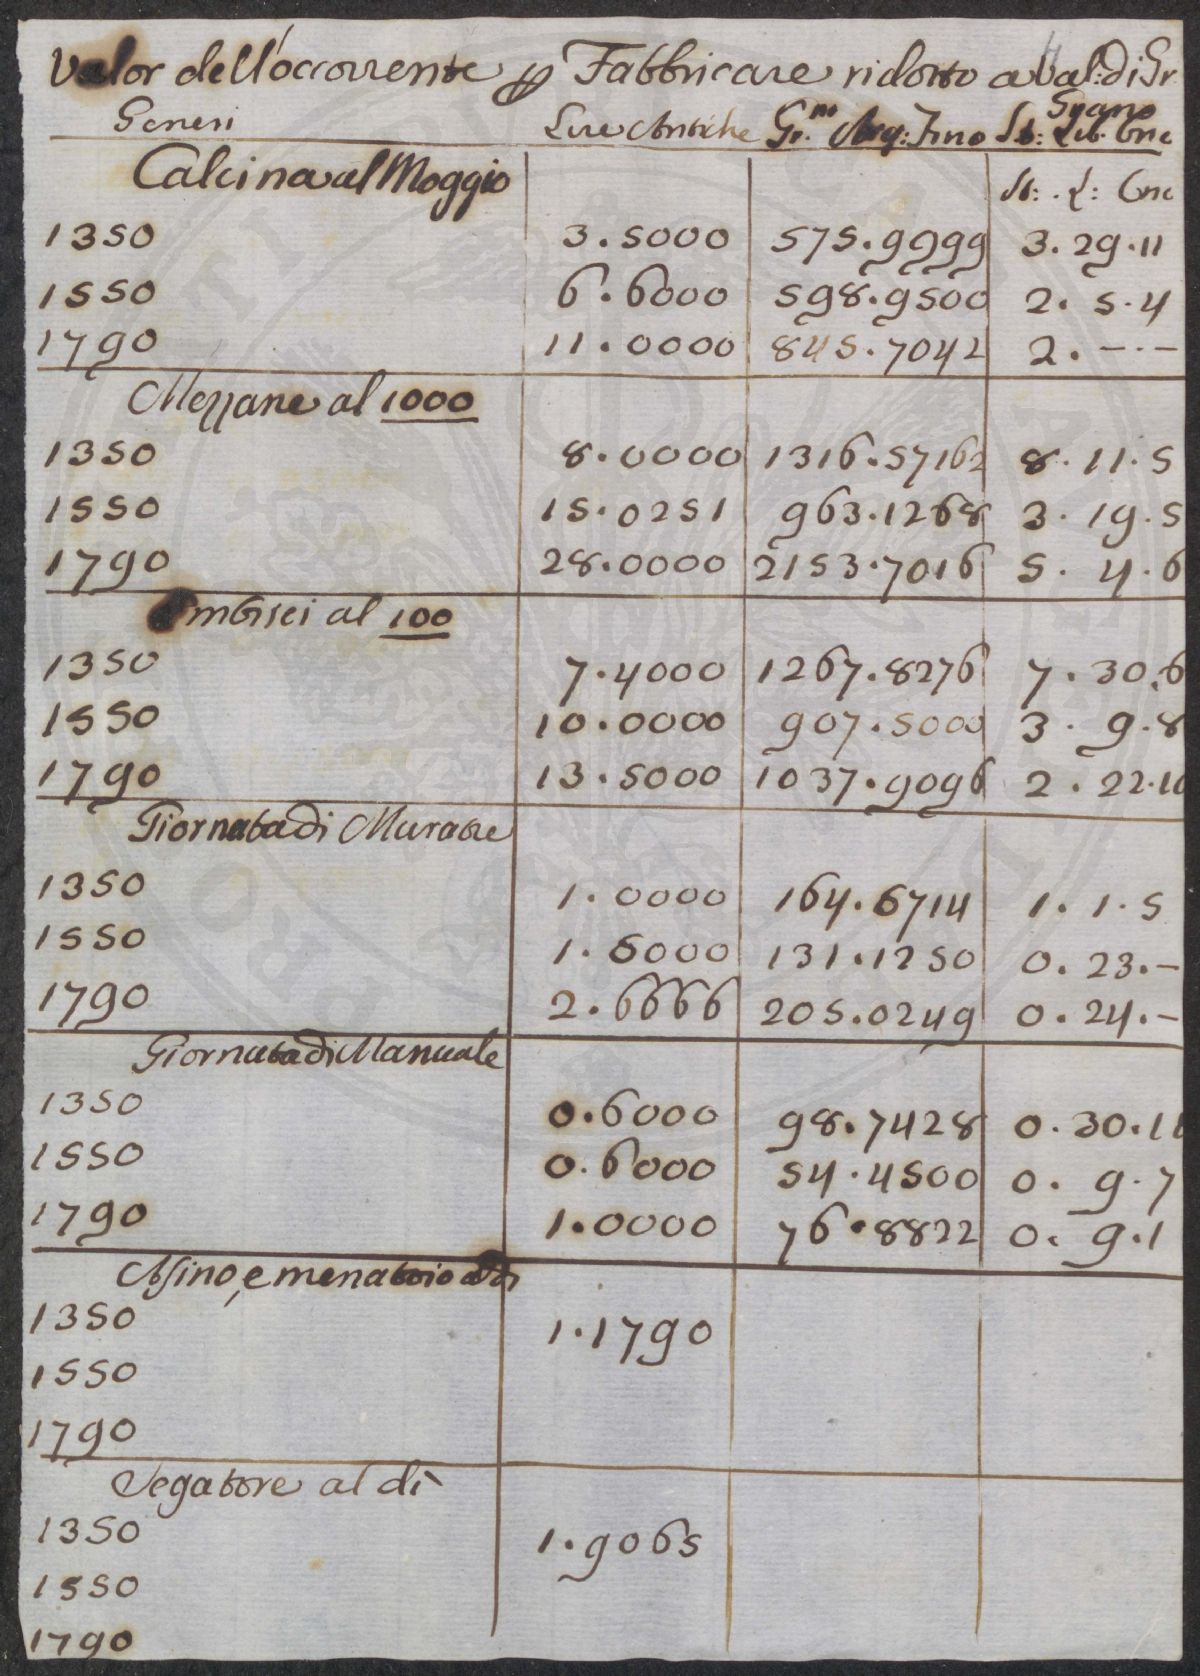 Valor dell'occorrente p Fabbricare ridotto a Val: di Gr
Generi Lire Antiche Gr.ni Arg: Fino Grano St: Lib. Onc
Calcina al Moggio St: . L: Onc
1350 3.5000 575.9999 3. 29. 11
1550 6.6000 598.9500 2. 5. 4
1790 11.0000 845.7042 2. - . -
Mezzane al 1000
1350 8.0000 1316.57162 8. 11. 5
1550 15.0251 963.1268 3. 19. 5
1790 28.0000 2153.7016 5. 4. 6
Embrici al 100
1350 7.4000 1267.8276 7. 30. 6
1550 10.0000 907.5000 3. 9. 8
1790 13.5000 1037.9096 2. 22. 10
Giornata di Muratre
1350 1.0000 164.6714 1. 1. 5
1550 1.5000 131.1250 0. 23. -
1790 2.6666 205.0249 0. 24. -
Giornata di Manuale
1350 0.6000 98.7428 0. 30. 11
1550 0.6000 54.4500 0. 9. 7
1790 1.0000 76.8822 0. 9. 1
Asino, e menatoio al dì
1350 1.1790
1550
1790
Segatore al dì
1350 1.9065
1550
1790